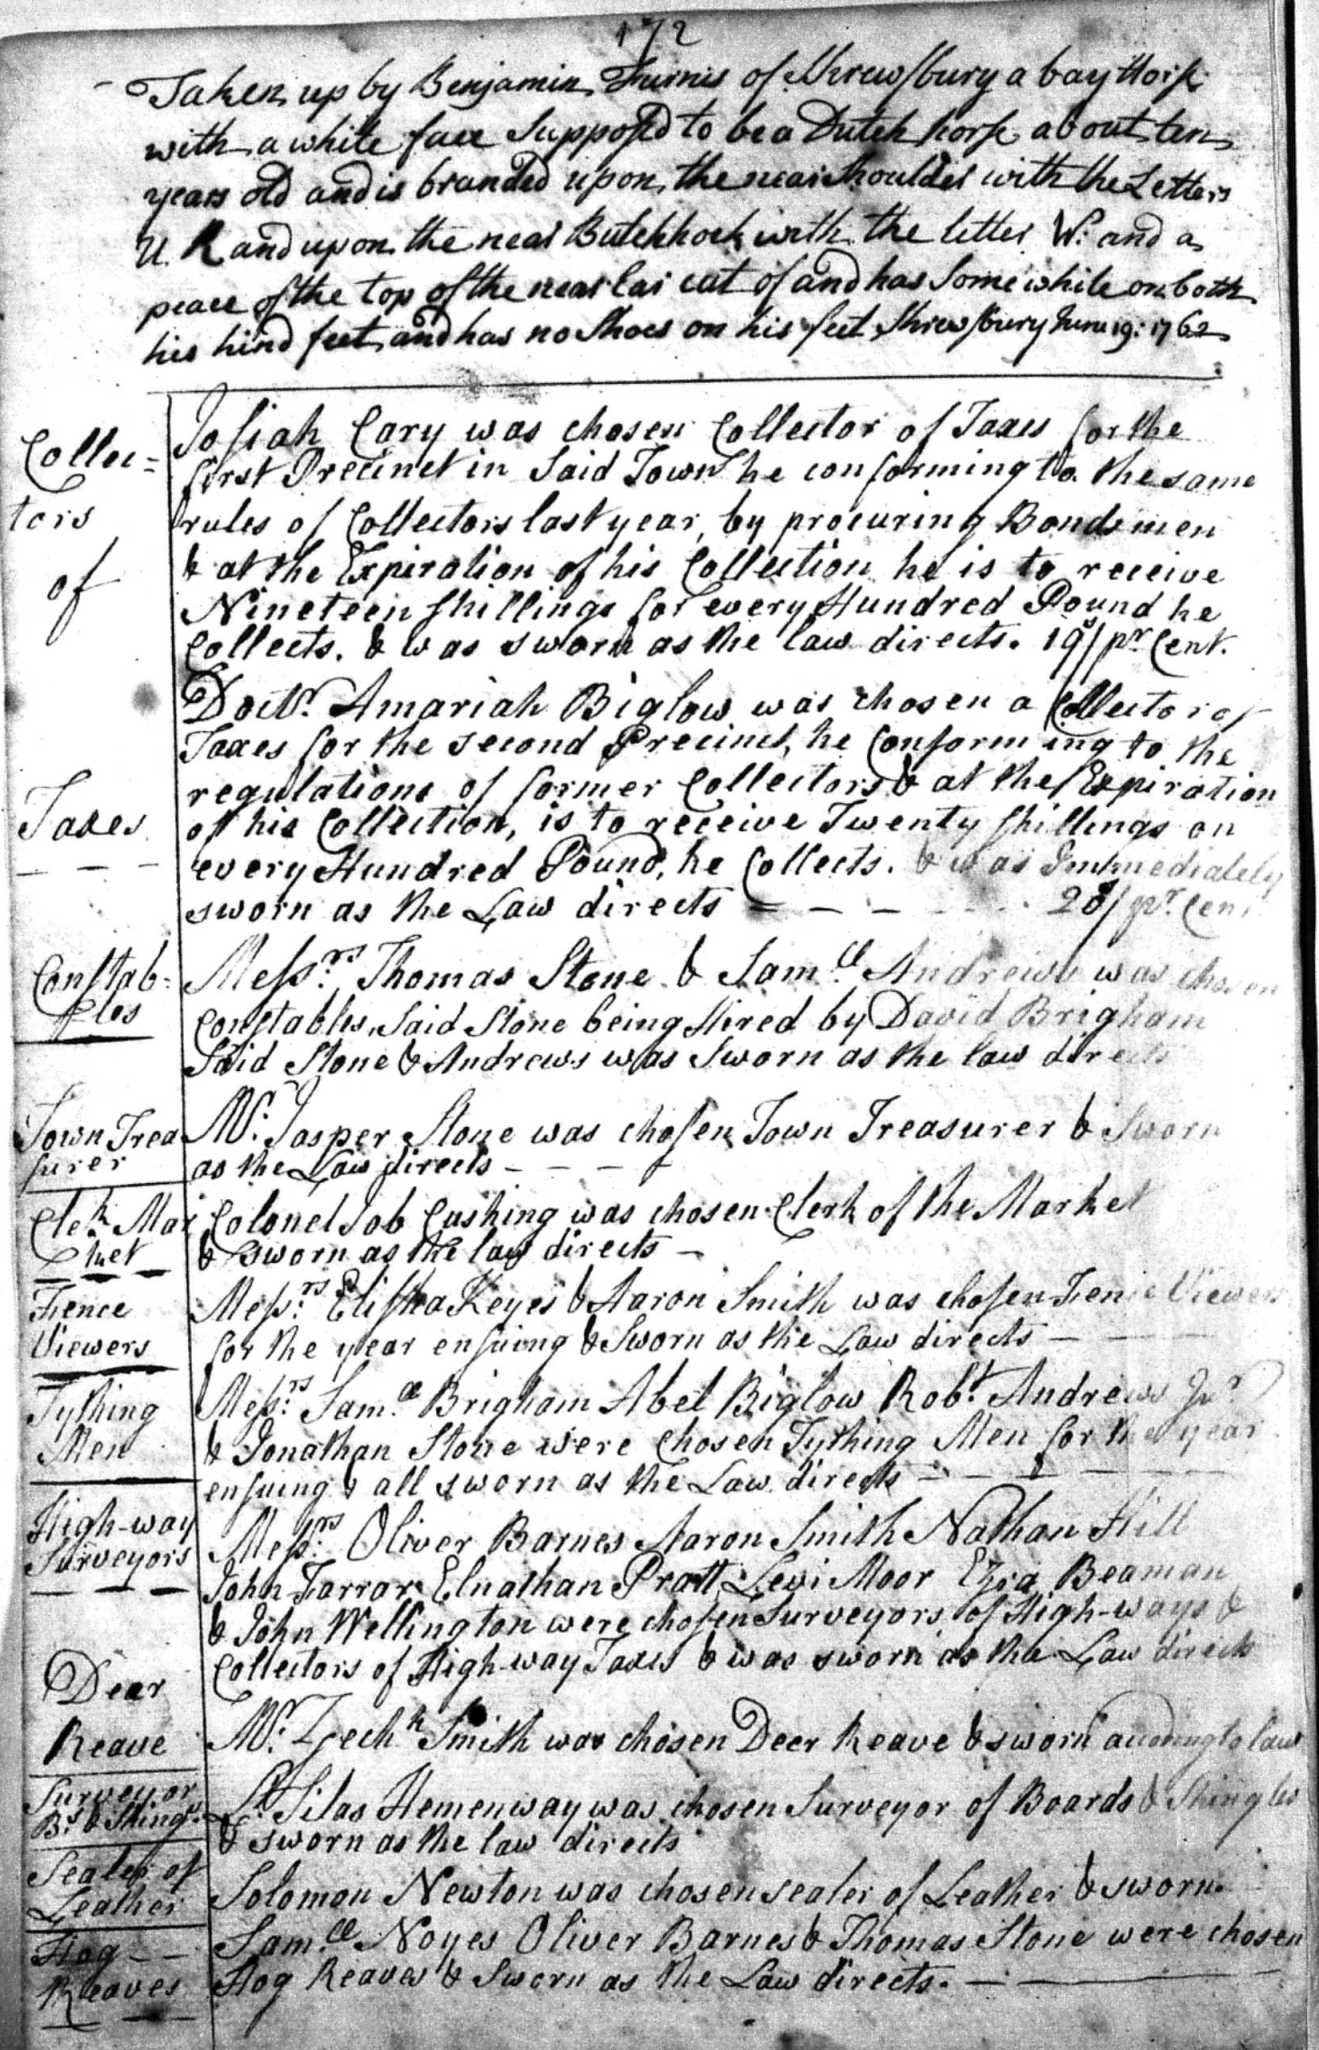 172
Taken up by Benjamin Furnis of Shrewsbury a bay Horse
with a white face Supposed to be a Dutch horse about ten
years old and is branded upon the near Shoulder with the Letters
U. R and upon the near Buttchhock with the letter W: and a
peace of the top of the near Ear cut of and has Some white on both
his hind feet and has no Shoes on his feet Shrewsbury June 19: 1762
Collec=
tors
of
Taxes
Josiah Cary was chosen Collector of Taxes for the
first Precinct in Said Town he conforming to the same
rules of Collectors last year, by procuring Bondsmen
& at the Expiration of his Collection he is to receive
Nineteen shillings for every Hundred Pound he
Collects. & was sworn as the law directs. 19s/ pr Cent.
Doctr. Amariah Biglow was chosen a Collector of
Taxes for the second Precinct, he Conforming to the
regulations of former Collectors & at the Expiration
of his Collection, is to receive Twenty shillings on
every Hundred Pound, he Collects. & was Immediately
sworn as the Law directs — — — 20/ pr. Cent
Constab=
les
Messrs. Thomas Stone & Samll Andrews was chosen
Constables, Said Stone being Hired by David Brigham
Said Stone & Andrews was Sworn as the law directs
Town Trea
surer
Mr. Jasper Stone was chosen Town Treasurer & Sworn
as the Law directs — — — —
Clek Mar
ket
Colonel Job Cushing was chosen Clerk of the Market
& Sworn as the law directs —
Fience
Viewers
Messrs. Elisha Keyes & Aaron Smith was chosen Fence Viewers
for the year ensuing & Sworn as the Law directs —
Tything
Men
Messrs. Samll Brigham Abel Biglow Robt Andrews Jnr
& Jonathan Stone were Chosen Tything Men for the year
ensuing & all sworn as the Law directs —
High-way
Surveyors
Messrs. Oliver Barnes Aaron Smith Nathan Hill
John Farrar Elnathan Pratt Levi Moor Ezra Beaman
& John Wellington were chosen Surveyors of High-ways &
Collectors of High-way Taxes & was sworn as the Law directs
Dear
Reave
Mr. Zechh Smith was chosen Deer Reave & sworn according to law
Surveyor
Bs. & Shings.
Lt Silas Hemenway was chosen Surveyor of Boards & Shingles
& sworn as the law directs
Sealer of
Leather
Solomon Newton was chosen sealer of Leather & sworn.
Hog —
Reaves
Samll Noyes Oliver Barnes & Thomas Stone were chosen
Hog Reaves & Sworn as the Law directs. —